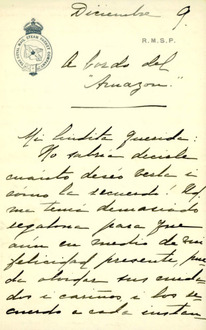 Diciembre 9.
R.M.S.P.
A bordo del
"Amazon".
Mi lindita querida:
No sabria decirle
cuánto deseo verla i
cómo la recuerdo! Ud.
me tenía demasiado
regalona para que
aún en medio de mi
felicidad presente, pue
da olvidar sus cuida
dos i cariños, i los re
cuerdo a cada instan